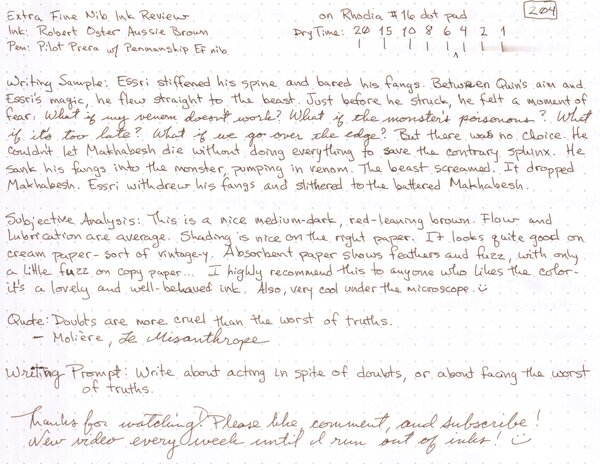 Extra Fine Nib Ink Review on Rhodia #16 dot pad 204
Ink: Robert Oster Aussie Brown Dry Time: 20 15 10 8 6 4 2 1
Pen: Pilot Prera w/ Penmanship EF nib
Writing Sample: Essri stiffened his spine and bared his fangs. Between Quin's aim and
Essri's magic, he flew straight to the beast. Just before he struck, he felt a moment of
fear. What if my venom doesn't work? What if the monster's poisonous? What
if it's too late? What if we go over the edge? But there was no choice. He
couldn't let Makhabesh die without doing everything to save the contrary sphinx. He
sank his fangs into the monster, pumping in venom. The beast screamed. It dropped
Makhabesh. Essri withdrew his fangs and slithered to the battered Makhabesh.
Subjective Analysis: This is a nice medium-dark, red-leaning brown. Flow and
lubrication are average. Shading is nice on the right paper. It looks quite good on
cream paper - sort of vintage-y. Absorbent paper shows feathers and fuzz, with only
a little fuzz on copy paper... I highly recommend this to anyone who likes the color-
it's a lovely and well-behaved ink. Also, very cool under the microscope. :)
Quote: Doubts are more cruel than the worst of truths.
- Molière, Le Misanthrope
Writing Prompt: Write about acting in spite of doubts, or about facing the worst
of truths.
Thanks for watching! Please like, comment, and subscribe!
New video every week until I run out of inks! :)